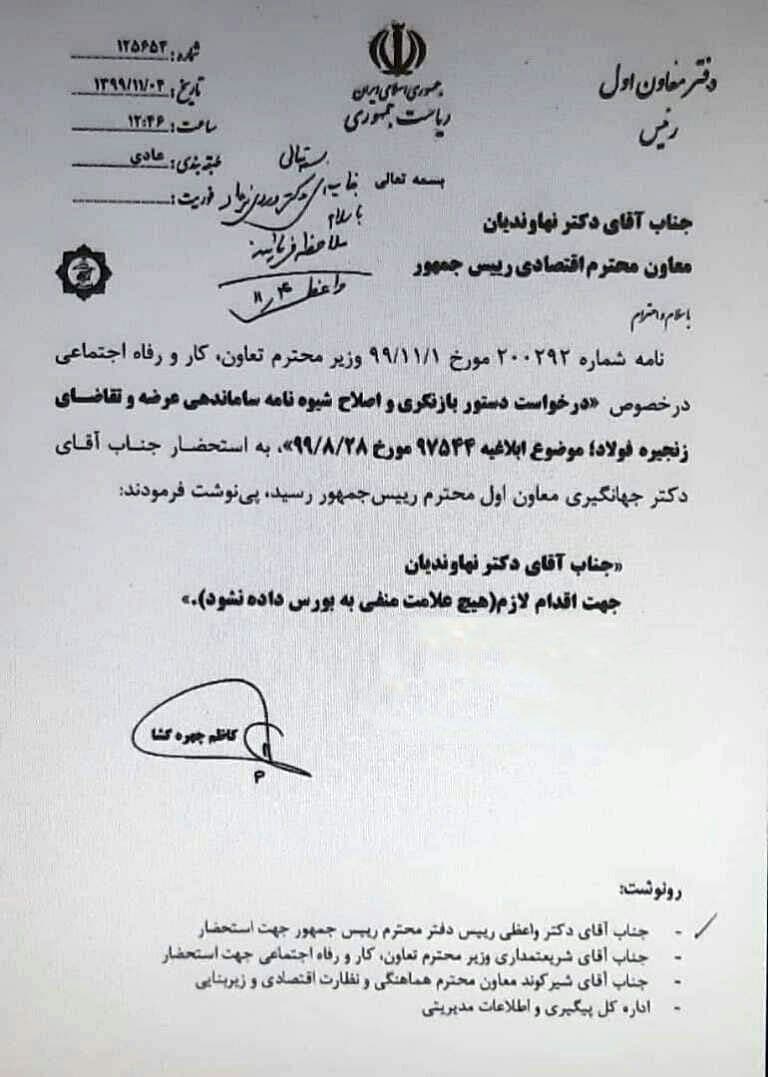 دفتر معاون اول
رئیس
جمهوری اسلامی ایران
ریاست جمهوری
شماره: ۱۲۵۶۵۳
تاریخ: ۱۳۹۹/۱۱/۰۳
ساعت: ۱۲:۴۶
طبقه‌بندی: عادی
فوریت:
بسمه تعالی
بسمه تعالی
جناب آقای دکتر
با سلام
ملاحظه فرمایید
واعظی ۱۱/۴
جناب آقای دکتر نهاوندیان
معاون محترم اقتصادی رییس جمهور
باسلام و احترام
نامه شماره ۲۰۰۲۹۲ مورخ ۹۹/۱۱/۱ وزیر محترم تعاون، کار و رفاه اجتماعی
درخصوص «درخواست دستور بازنگری و اصلاح شیوه نامه ساماندهی عرضه و تقاضای
زنجیره فولاد؛ موضوع ابلاغیه ۹۷۵۴۴ مورخ ۹۹/۸/۲۸»، به استحضار جناب آقای
دکتر جهانگیری معاون اول محترم رییس‌جمهور رسید، پی‌نوشت فرمودند:
«جناب آقای دکتر نهاوندیان
جهت اقدام لازم(هیچ علامت منفی به بورس داده نشود).»
کاظم چهره گشا
رونوشت:
- جناب آقای دکتر واعظی رییس دفتر محترم رییس جمهور جهت استحضار
- جناب آقای شریعتمداری وزیر محترم تعاون، کار و رفاه اجتماعی جهت استحضار
- جناب آقای شیرکوند معاون محترم هماهنگی و نظارت اقتصادی و زیربنایی
- اداره کل پیگیری و اطلاعات مدیریتی